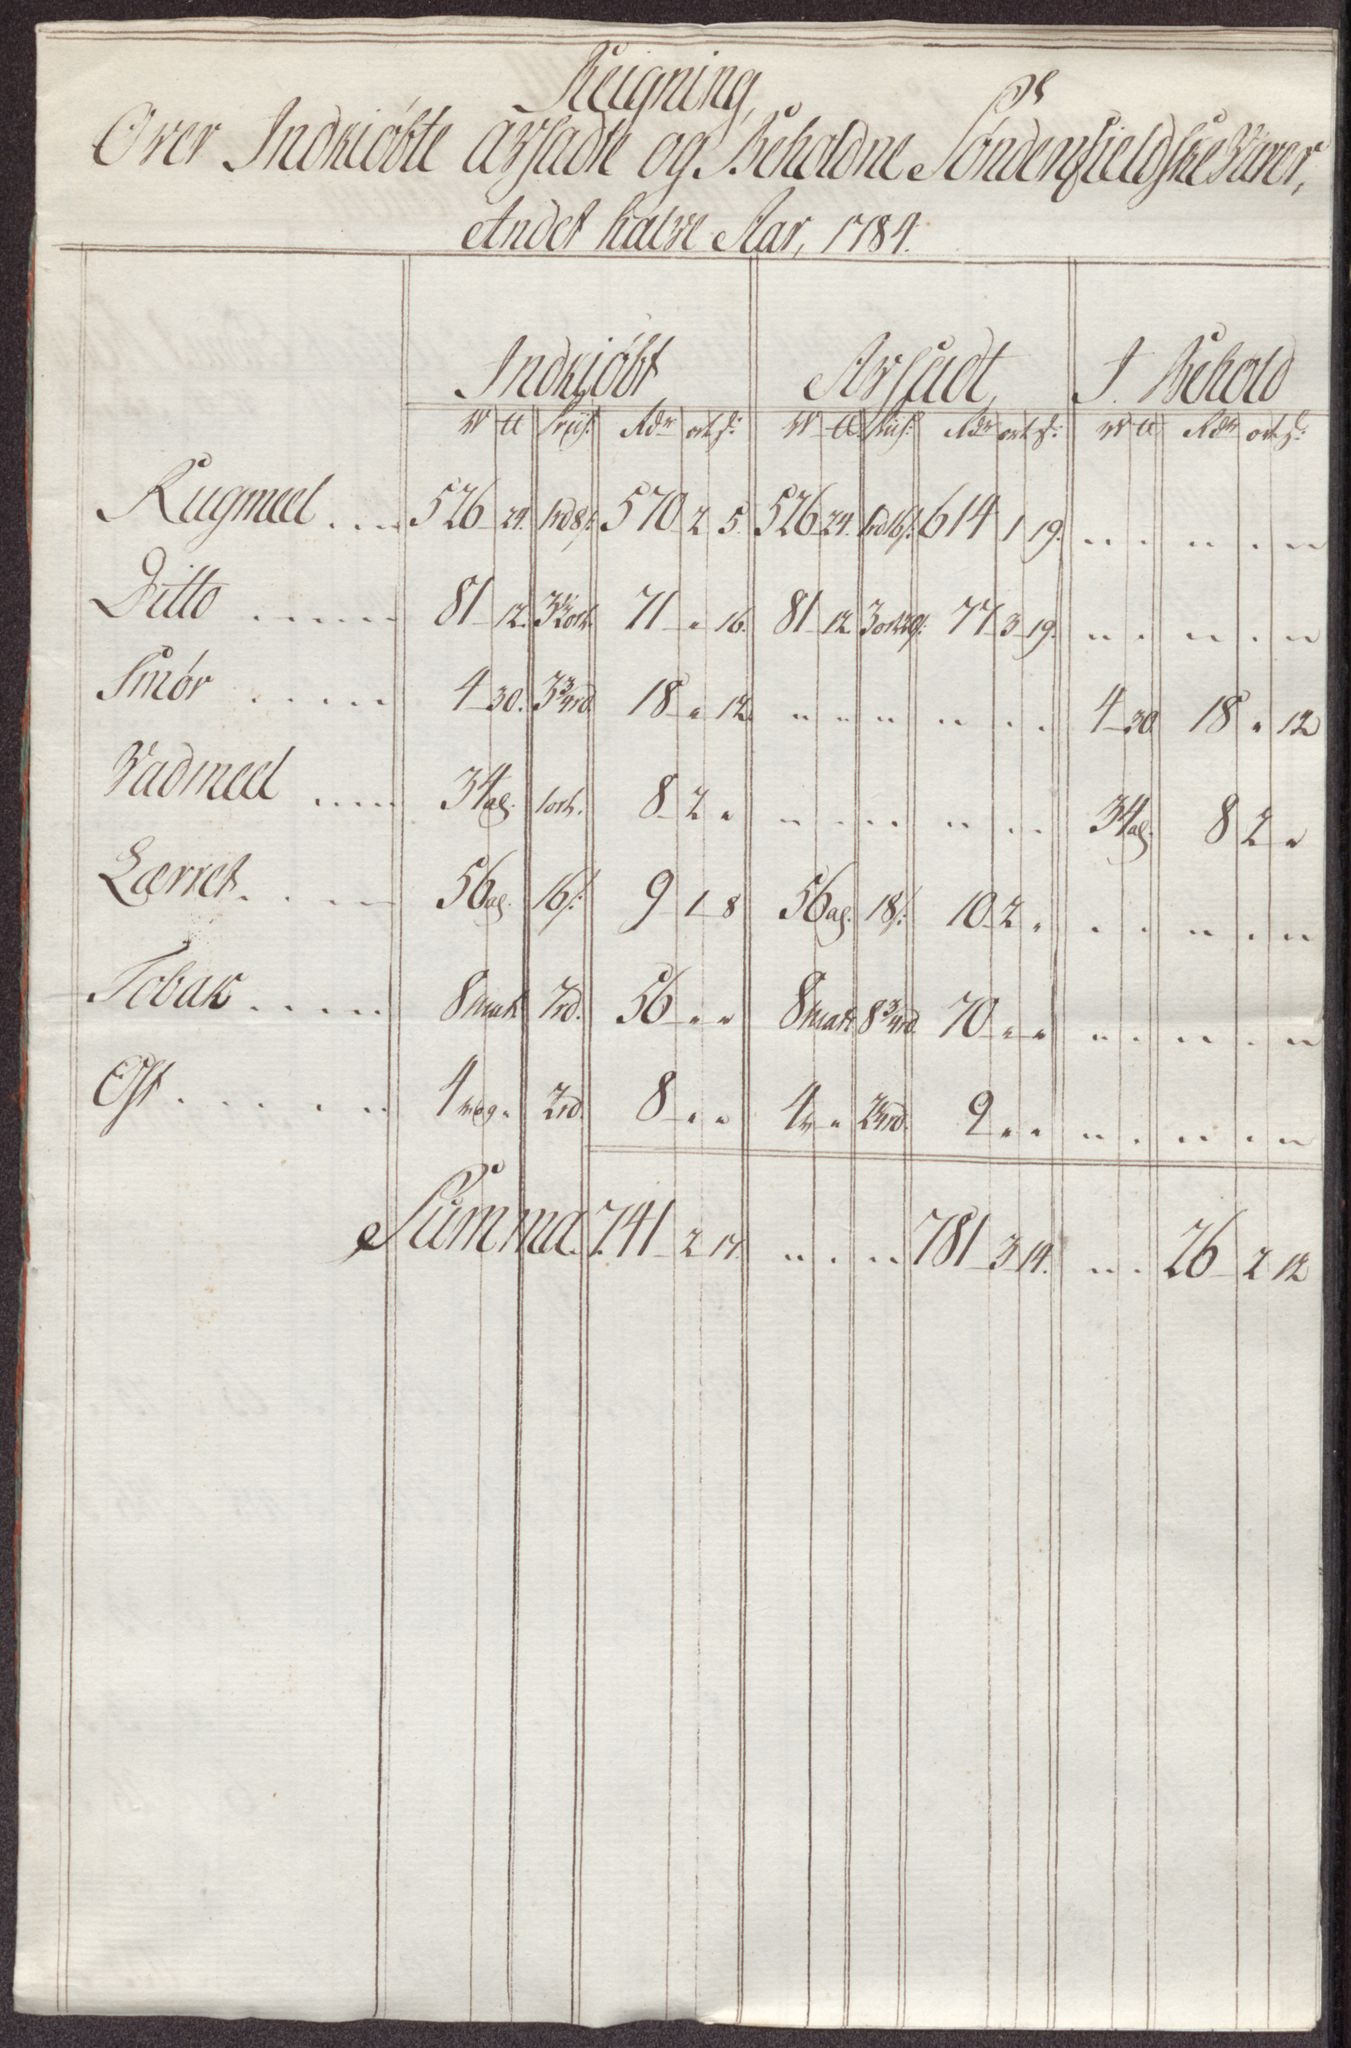 Reigning,
Over Indkiøbte avsadte og Beholdne Søndenfieldske Varer,
Andet halve Aar, 1784.
Indkiøbt Avsadt, I Behold
W ℔ Priis: Rdr ort s: W ℔ Priis: Rdr ort s: W ℔ Rdr ort s:
Rugmeel .... 526 24. 1rd8s: 570 2 5. 526 24. 1rd16s: 614 1 19. " " " " "
Ditto ..... 81 12. 3½ort. 71 " 16. 81 12 3ort20s: 77 3 19. " " " " "
Smør ..... 4 30. 3¾rd. 18 " 12. " " " " " " 4 30 18 " 12
Vadmeel .... 34al. 1ort. 8 2 " " " " " " " 34al. 8 2 "
Lærret .... 56al. 16s: 9 1 8 56al. 18s: 10 2 " " " " " "
Tobak ..... 8matt 7rd. 56 " " 8matt 8¾rd. 70 " " " " " " "
Ost ..... 4 wog " 2rd. 8 " " 4w " 2¼rd. 9 " " " " " " "
Summa. 741 2 17. " " " 781 3 14. " " 26 2 12